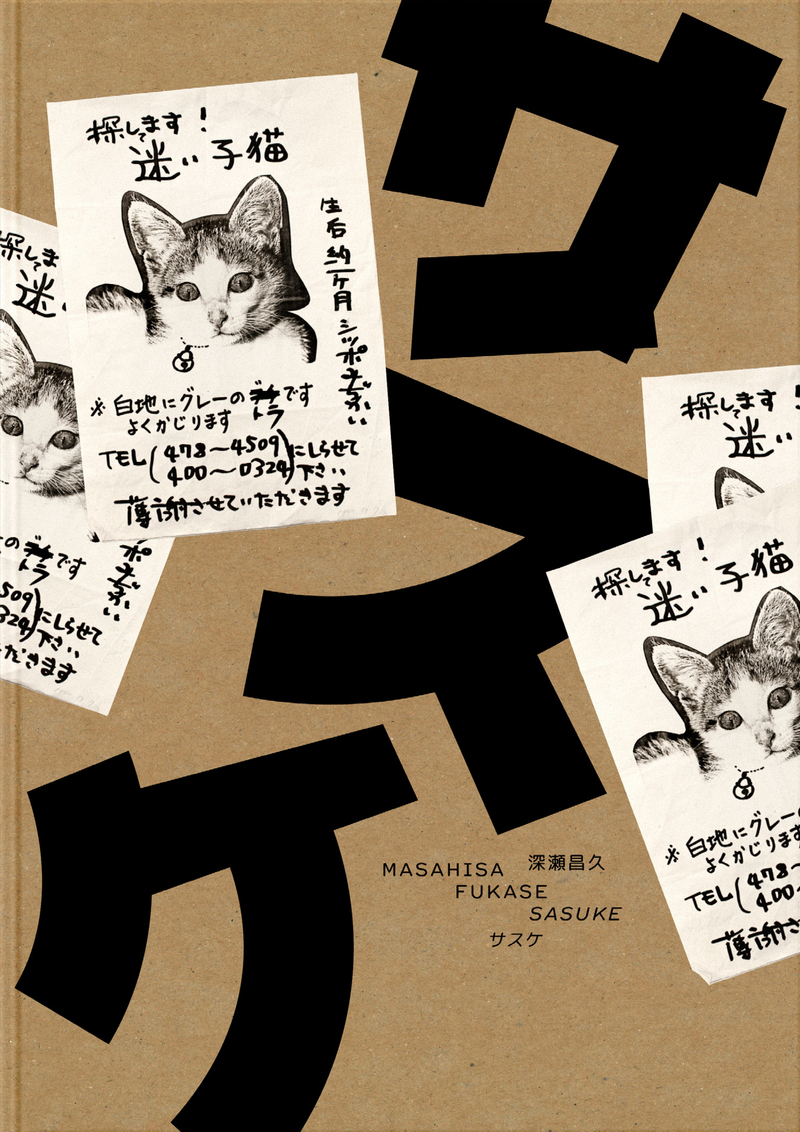 サスケ
探してます!
迷い子猫
生后約一ケ月シッポまだ赤い
※白地にグレーのブチです
トラ
よくかじります
TEL(478〜4509
400〜0324)にしらせて
下さい
薄謝させていただきます
探しま
迷
の ブチです
トラ
509
324)にしらせて
下さい
ただきます
探してます!
迷い
探してます!
迷い子猫
※白地にグレー
よくかじります
TEL(478〜
400〜
薄謝さ
MASAHISA 深瀬昌久
FUKASE
SASUKE
サスケ